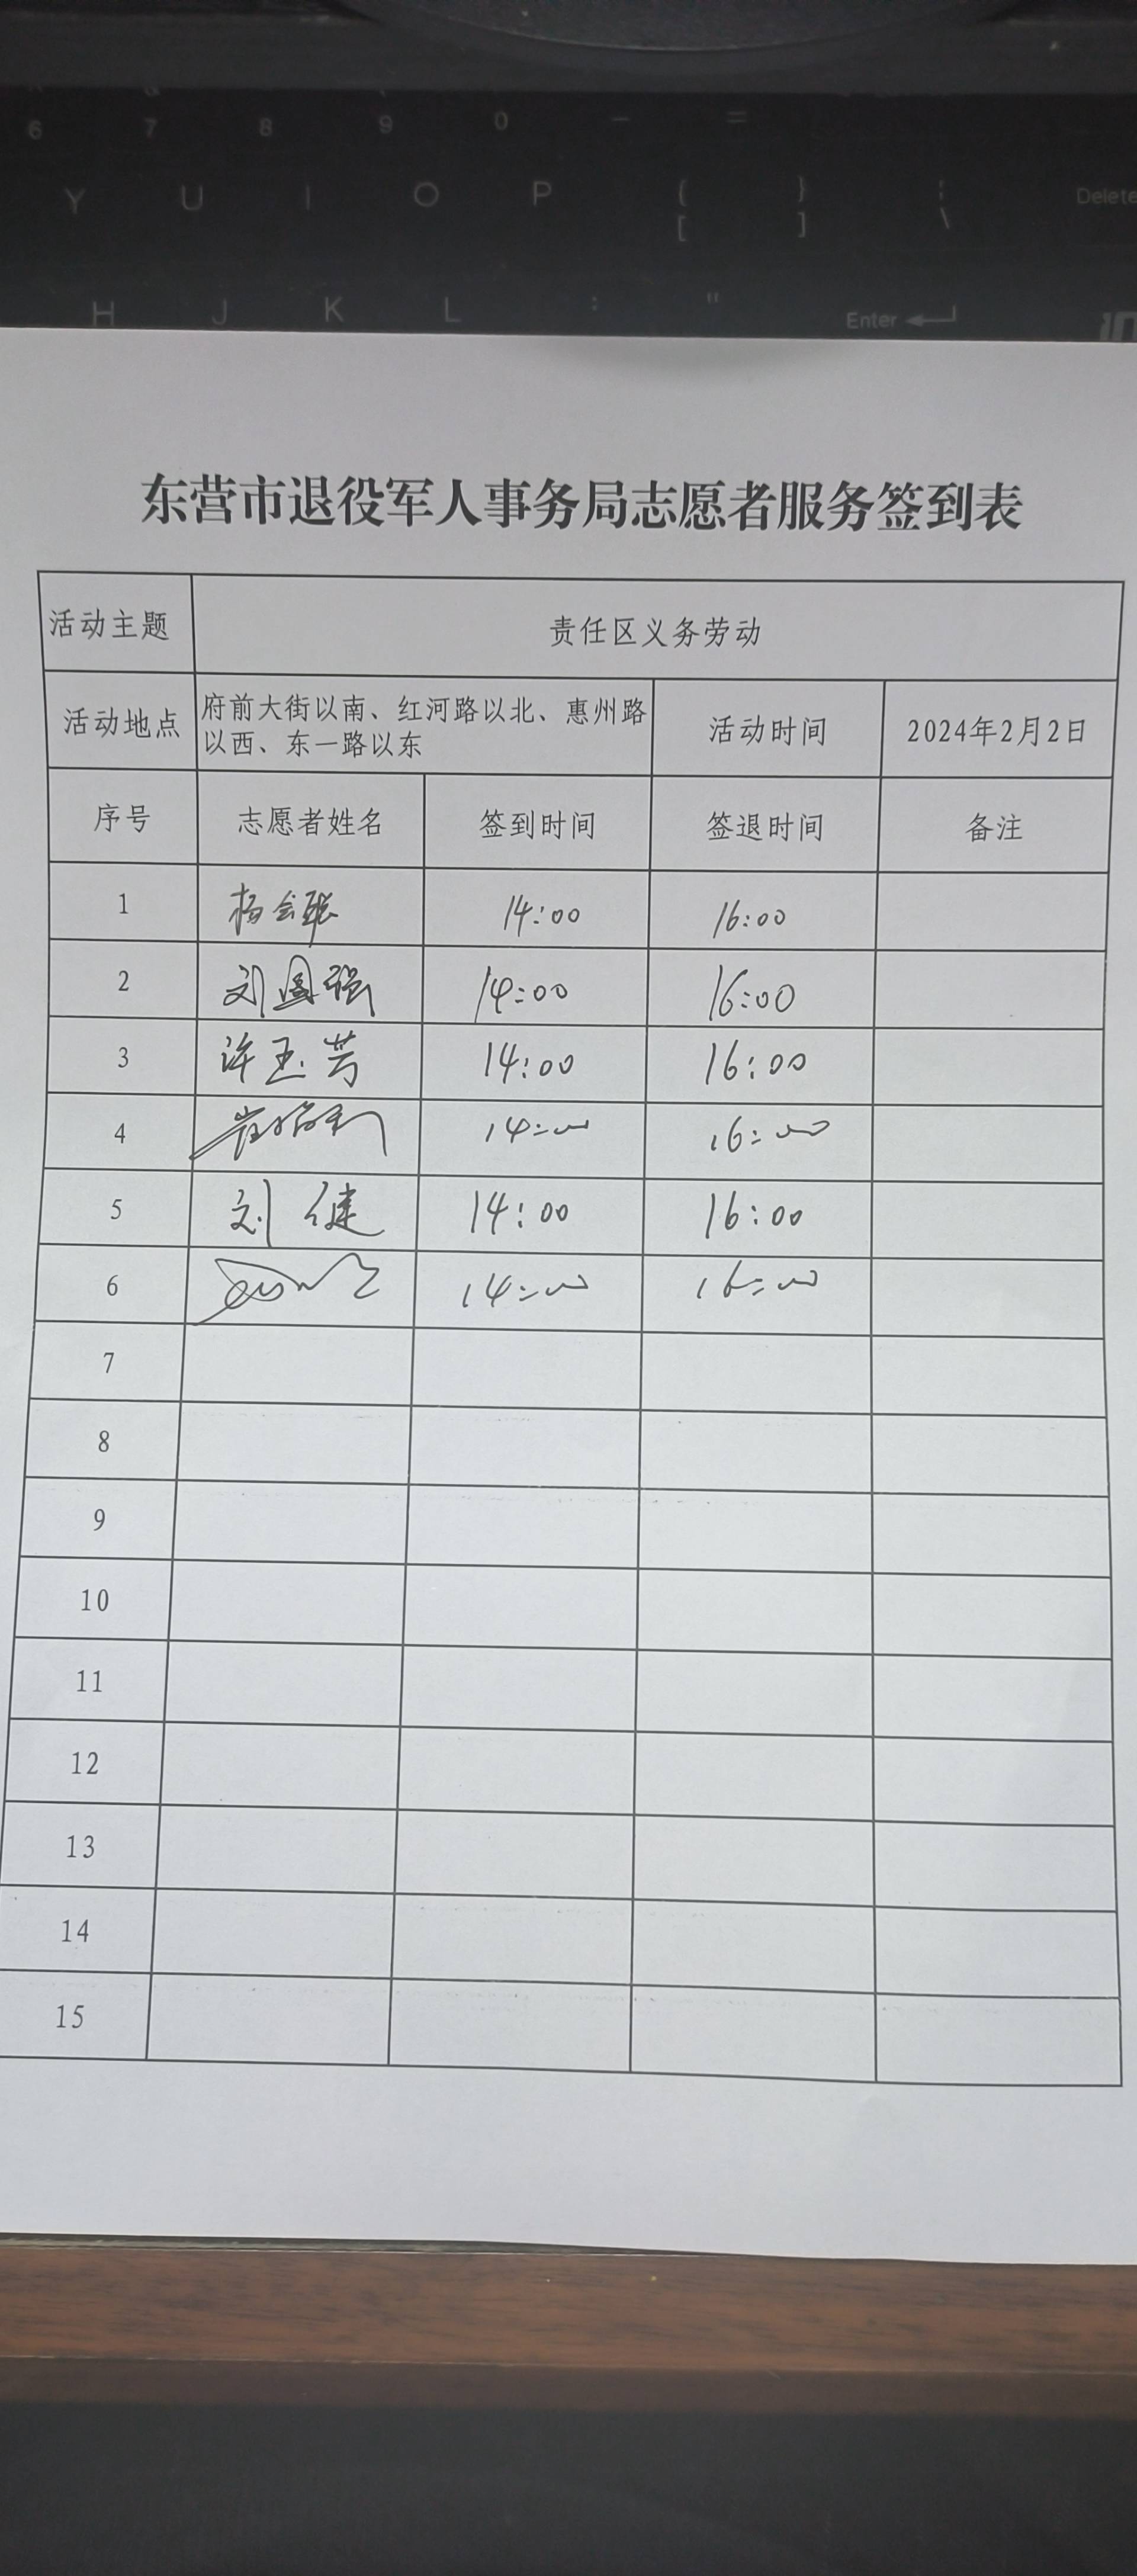 6 7 8 9 0 - =
Y U I O P { } ¦ Delete
[ ] \
H J K L : " Enter
东营市退役军人事务局志愿者服务签到表
活动主题 责任区义务劳动
活动地点 府前大街以南、红河路以北、惠州路以西、东一路以东 活动时间 2024年2月2日
序号 志愿者姓名 签到时间 签退时间 备注
1 杨会聪 14:00 16:00
2 刘国强 14:00 16:00
3 许玉芳 14:00 16:00
4 14:00 16:00
5 刘健 14:00 16:00
6 14:00 16:00
7
8
9
10
11
12
13
14
15